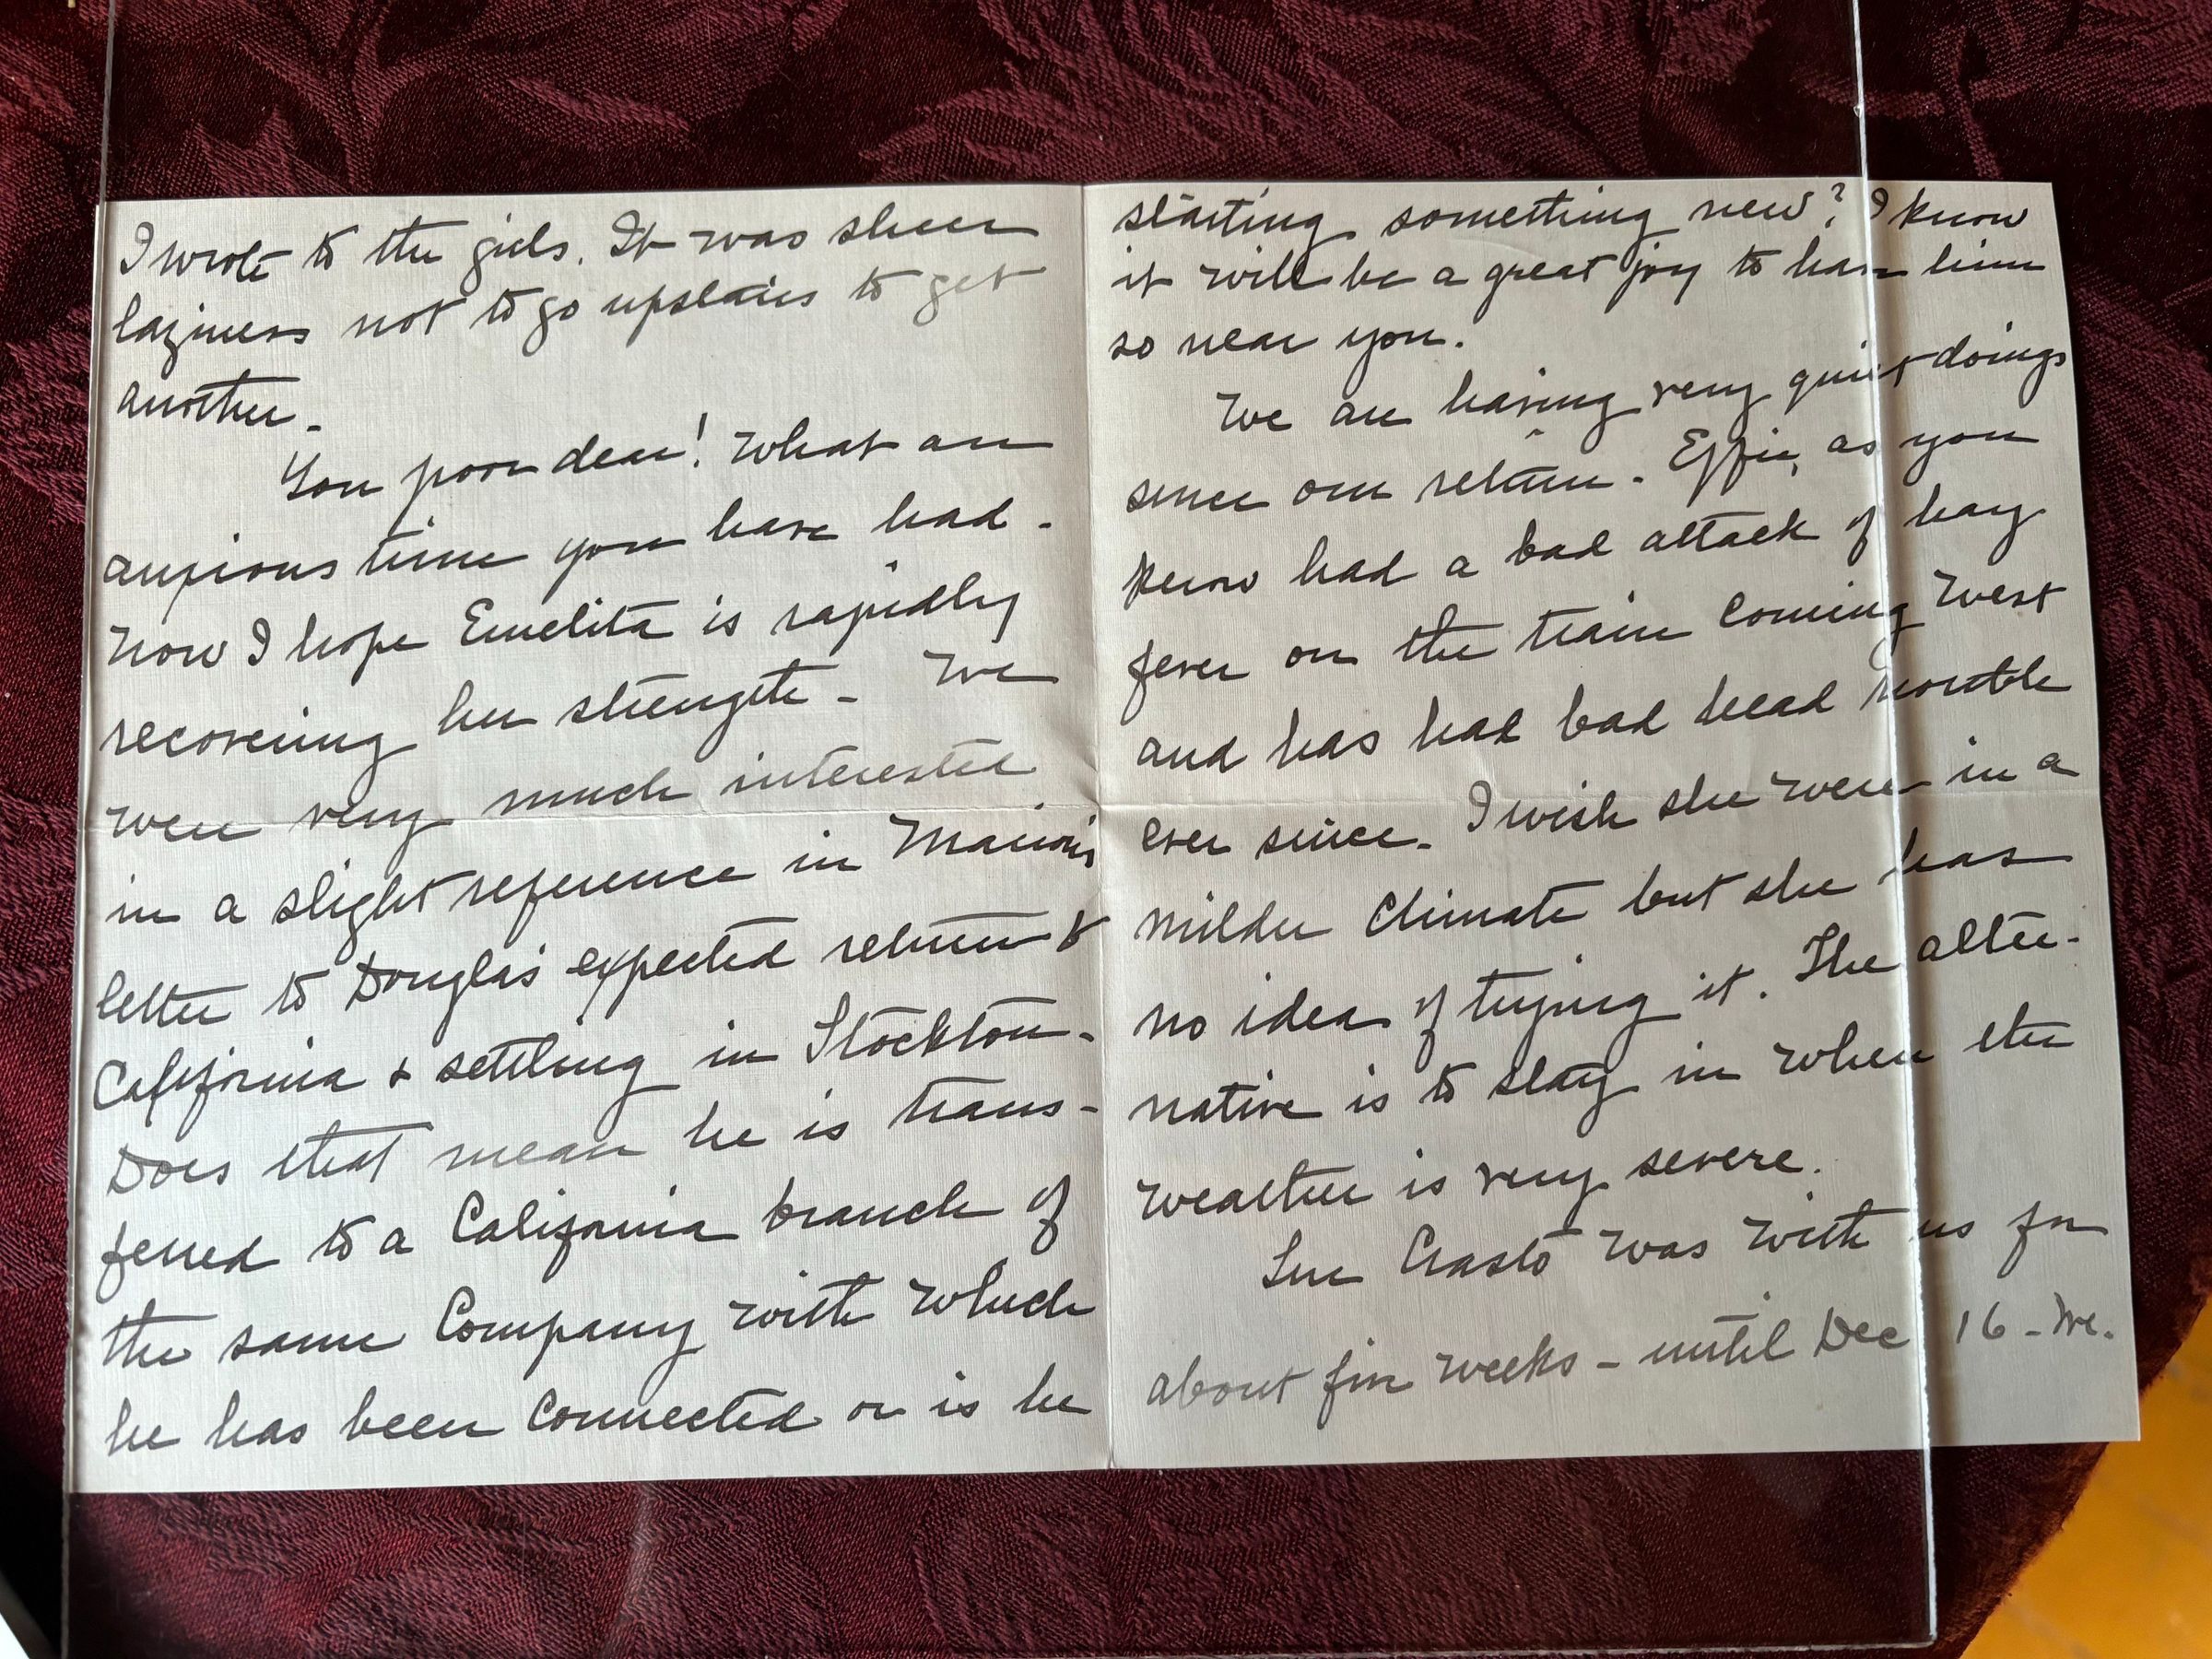 I wrote to the girls. It was sheer
laziness not to go upstairs to get
another.
You poor dear! What an
anxious time you have had -
Now I hope Emelita is rapidly
recovering her strength - We
were very much interested
in a slight reference in Marion's
letter to Douglas' expected return to
California & settling in Stockton -
Does that mean he is trans-
ferred to a California branch of
the same Company with which
he has been connected or is he
starting something new? I know
it will be a great joy to have him
so near you.
We are having very quiet doings
since our return. Effie, as you
know had a bad attack of hay
fever on the train coming West
and has had bad head trouble
ever since. I wish she were in a
milder climate but she has
no idea of trying it. The alter-
native is to stay in when the
weather is very severe.
was with us for
about five weeks - until Dec 16 - We.